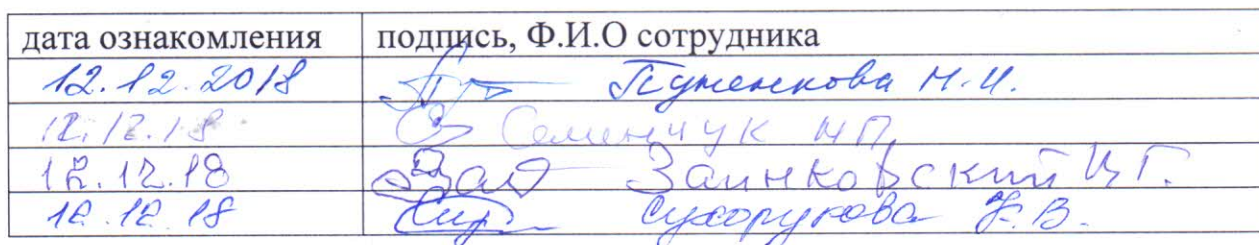 дата ознакомления подпись, Ф.И.О сотрудника
12.12.2018 Пуненкова Н.И.
12.12.18 Семенчук НП
12.12.18 Заинковский
12.12.18 Сухорукова В.